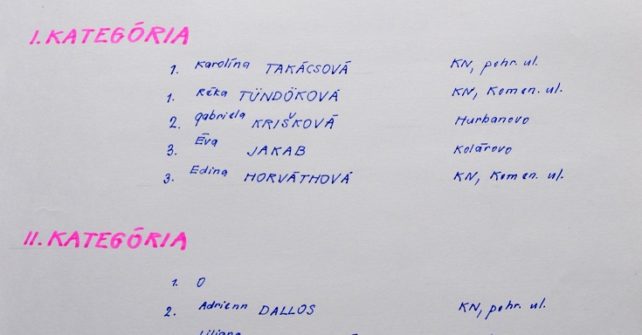 I. KATEGÓRIA
1. Karolína TAKÁCSOVÁ KN, pohr. ul.
1. Réka TÜNDÖKOVÁ KN, Komen. ul.
2. Gabriela KRIŠKOVÁ Hurbanovo
3. Éva JAKAB Kolárovo
3. Edina HORVÁTHOVÁ KN, Komen. ul.
II. KATEGÓRIA
1. 0
2. Adrienn DALLOS KN, pohr. ul.
Liliana